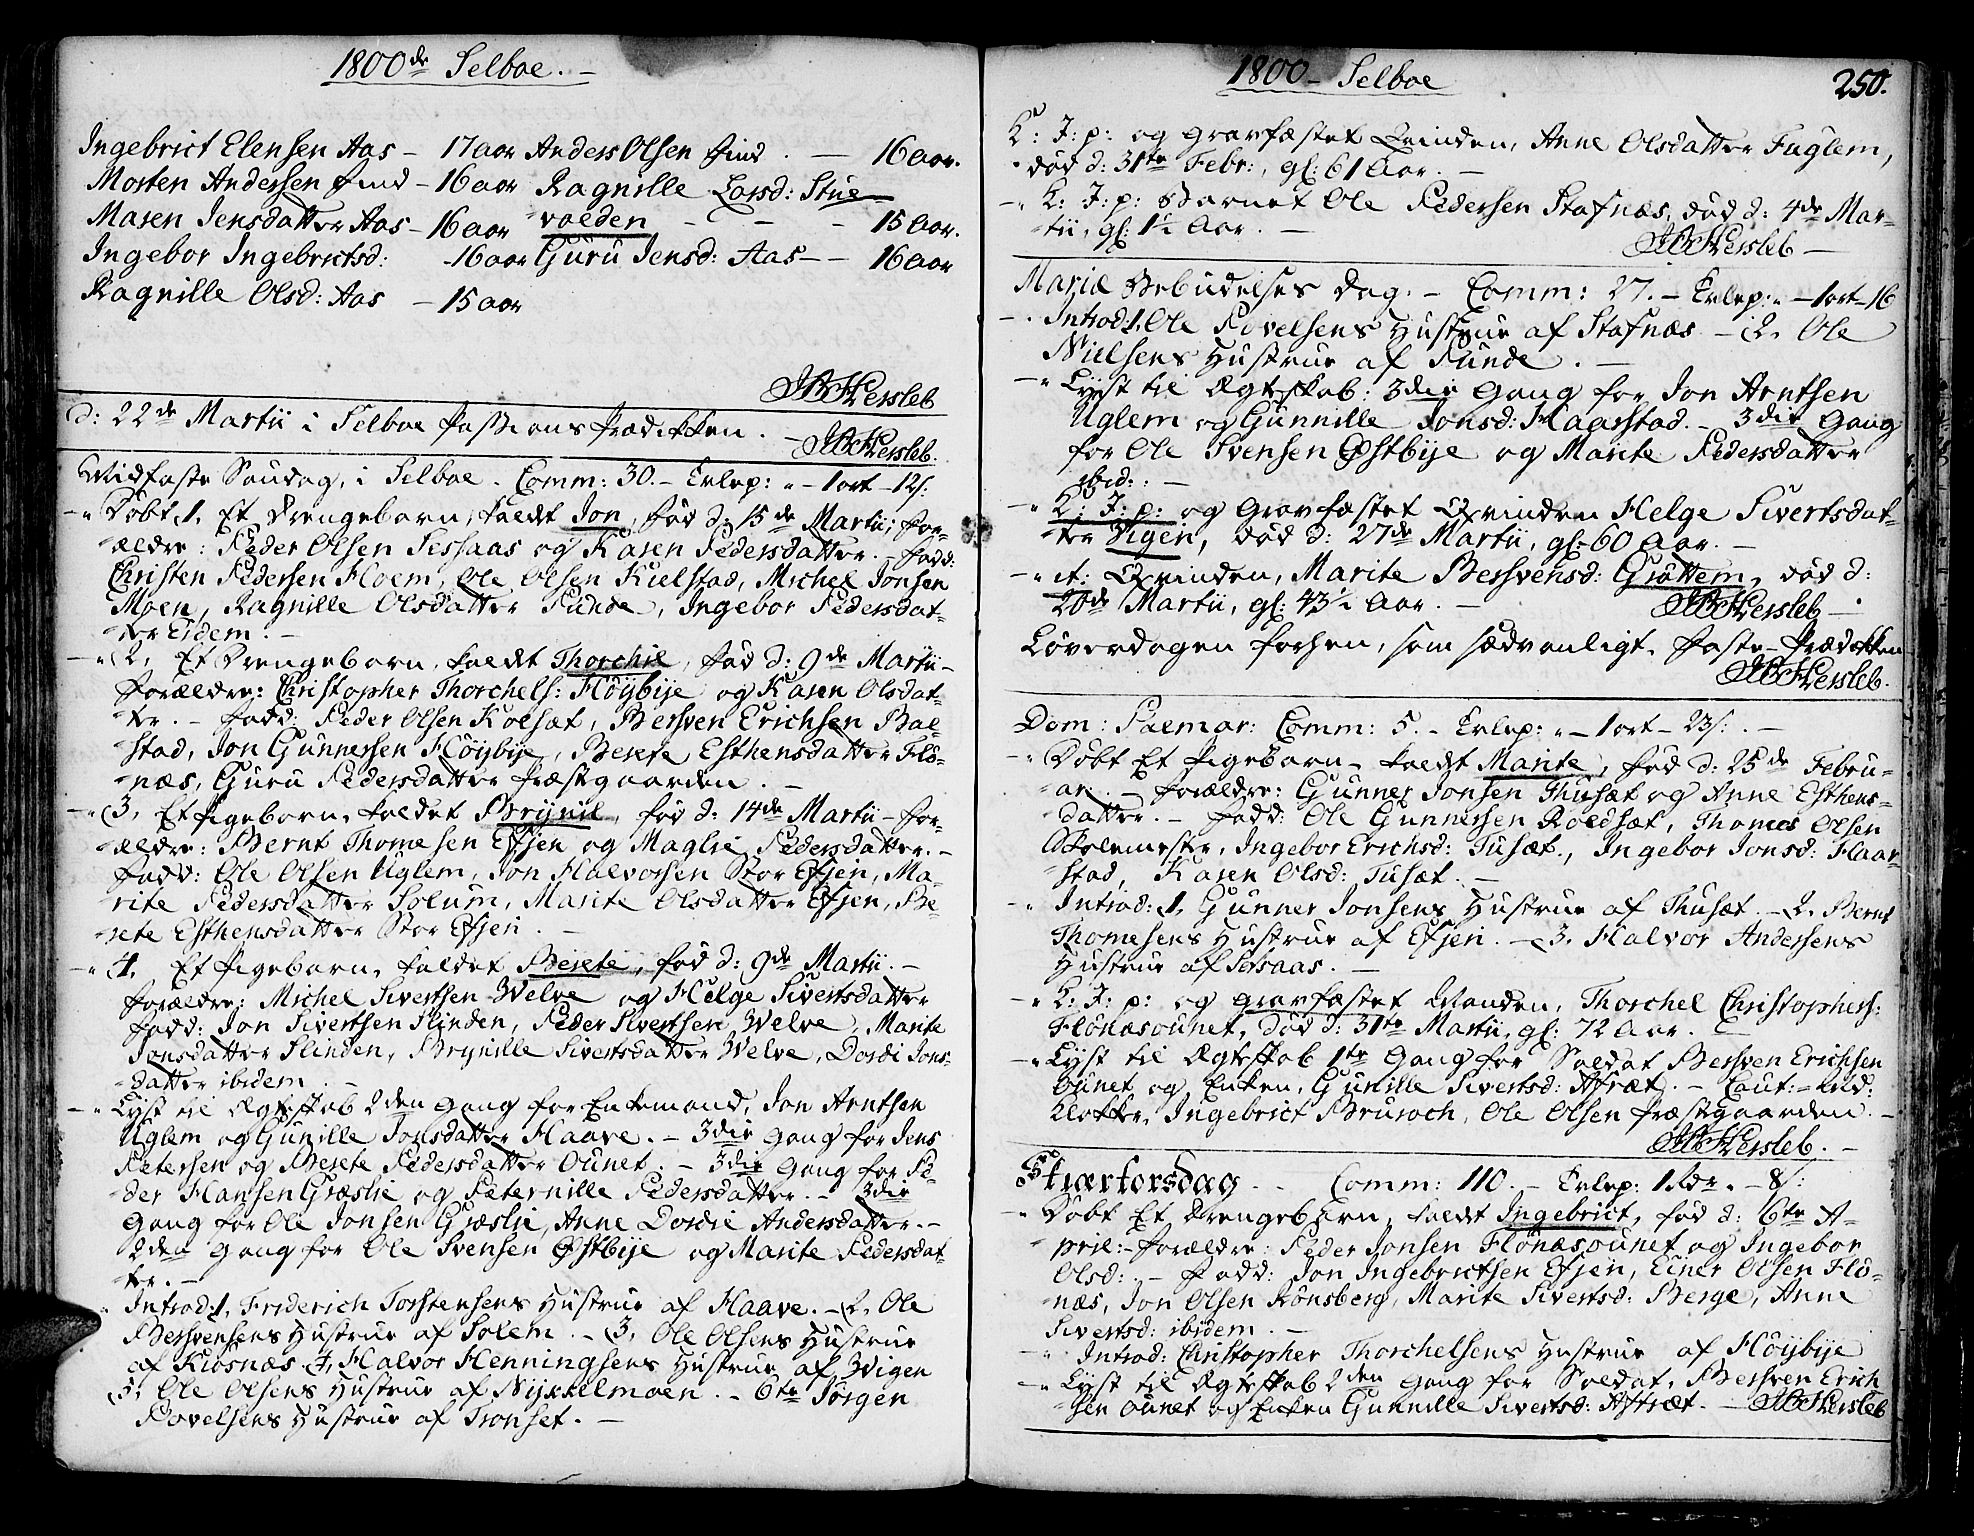 1800de Selboe. -
Ingebrict Elensen Aas - 17 aar
Morten Andersen Lind - 16 aar
Maren Jensdatter Aas - 16 aar
Ingebor Ingebrictsd: - 16 aar
Ragnille Olsd: Aas - 15 aar
Anders Olsen Lind . - 16 aar.
Ragnille Larsd: Stue-
volden - - - 15 Aar.
Guru Jensd: Aas - - 16 Aar
JBHersleb
d: 22de Martii i Selboe Passions Prædikken. - JBHersleb.
Midfaste Søndag, i Selboe. Comm: 30. - Erlep: " - 1 ort - 12 s:
-" Døbt 1, Et Drengebarn, kaldt Jon, fød d: 15de Martii; For-
ældre: Peder Olsen Sessaas og Karen Pedersdatter. - Fadd:
Christen Pedersen Floem, Ole Olsen Kielstad, Michel Jonsen
Moen, Ragnille Olsdatter Sunde, Ingebor Pedersdat-
ter Eidem. -
-" 2, Et Drengebarn, kaldt Thorchil, fød d: 9de Martii -
Forældre: Christopher Thorchels: Høÿbÿe og Karen Olsdat-
ter. - Fadd: Peder Olsen Kolset, Bersven Erichsen Bal-
stad, Jon Gunnersen Høÿbÿe, Berete Esthensdatter Flø-
næs, Guru Pedersdatter Præstgaarden. -
-" 3, Et Pigebarn, kaldet Brÿnil, fød d: 14de Martii - For-
ældre: Bernt Thomesen Efjen og Maglie Pedersdatter. -
Fadd: Ole Olsen Uglem, Jon Halvorsen Stor Efjen, Ma-
rite Pedersdatter Solum, Marite Olsdatter Efjen, Be-
rete Esthensdatter Stor Efjen. -
-" 4, Et Pigebarn, kaldet Berete, fød d: 9de Martii. -
Forældre: Michel Sivertsen Welve og Helge Sivertsdatter
Fadd: Jon Sivertsen Slinden, Peder Sivertsen Welve, Marite
Jonsdatter Slinden, Brÿnille Sivertsdatter Welve, Dordi Jons-
datter ibidem. -
-" Lÿst til Ægteskab 2den Gang for Enkemand, Jon Arntsen
Uglem og Gunille Jonsdatter Haave. - 3die Gang for Jens
Petersen og Berete Pedersdatter Ounet. - 3die Gang for Pe-
der Hansen Græslie og Peternille Pedersdatter. - 3die
Gang for Ole Jonsen Græslie, Anne Dordie Andersdatter. -
2den Gang for Ole Svensen Østbÿe og Marite Pedersdat-
ter. -
" Introd: 1, Friderich Torstensens Hustrue af Haave. - 2, Ole
Bersvensens Hustrue af Solem. - 3, Ole Olsens Hustrue
af Kiøsnæs. 4, Halvor Henningsens Hustrue af Wigen
5, Ole Olsens Hustrue af Nÿkkelmoen. - 6te Jørgen
Povelsens Hustrue af Tronset. -
1800 - Selboe 250.
K: J: p: og gravfæstet Qvinden, Anne Olsdatter Fuglem,
død d: 31te Febr:, gl: 61 Aar. -
-" K: J: p: Barnet Ole Pedersen Stafnæs, død d: 4de Mar-
tii, gl: 1½ Aar. - JBHersleb -
Mariæ Bebudelses Dag. - Comm: 27. - Erlep: " - 1 ort - 16
-. Introd: 1, Ole Povelsens Hustrue af Stafnæs - 2, Ole
Nielsens Hustrue af Sunde. -
-" Lÿst til Ægteskab: 3die Gang for Jon Arntsen
Uglem og Gunnille Jonsd: Haarstad. - 3die Gang
for Ole Svensen Østbÿe og Marite Pedersdatter
ibid: . -
-" K: J: p: og Gravfæstet Qvinden Helge Sivertsdat-
ter Vigen, død d: 27de Martii, gl: 60 Aar. -
-" it: Qvinden, Marite Bersvensd: Grøttem, død d:
20de Martii, gl: 43½ Aar. - JBHersleb -
Løverdagen forhen, som sædvanligt, Faste-Prædikken
JBHersleb.
Dom: Palmar: Comm: 5. - Erlep: " - 1 ort - 23 s: . -
-" Døbt Et Pigebarn, kaldt Marite, fød d: 25de Febru-
ar. - Forældre: Gunner Jonsen Thusæt og Anne Esthens-
datter. - Fadd: Ole Gunnersen Roldsæt, Thomas Olsen
Skolemester, Ingebor Erichsd: Tusæt., Ingebor Jonsd: Haar-
stad, Karen Olsd: Tusæt. -
-" Introd: 1, Gunner Jonsens Hustrue af Thusæt. - 2, Bernt
Thomesens Hustrue af Efjen. - 3, Halvor Andersens
Hustrue af Sessaas. -
-" K: J: p: og gravfæstet Manden, Thorchel Christophers:
Flønæsounet, død d: 31te Martii, gl: 72 Aar. -
-" Lÿst til Ægteskab 1te Gang for Soldat Bersven Erichsen
Ounet og Enken, Gunille Sivertsd: Aftræt. - Caut: - Kud:
Klokker, Ingebrict Bruroch, Ole Olsen Præstgaarden. -
JBHersleb. -
Skiærtorsdag. - Comm: 110. - Erlep: 1 Rdr. - 8 s:
-" Døbt Et Drengebarn, kaldt Ingebrict, fød d: 6te A-
pril: - Forældre: Peder Jonsen Flønæsounet og Ingebor
Olsd: . - Fadd: Jon Ingebrictsen Efjen, Einer Olsen Flø-
næs, Jon Olsen Rønsberg, Marite Sivertsd: Berge, Anne
Sivertsd: ibidem. -
-" Introd: Christopher Thorchelsens Hustrue af Høÿbÿe
-" Lÿst til Ægteskab 2den Gang for Soldat, Bersven Erich
sen Ounet og Enken Gunnille Sivertsd: Aftræt. - JBHersleb